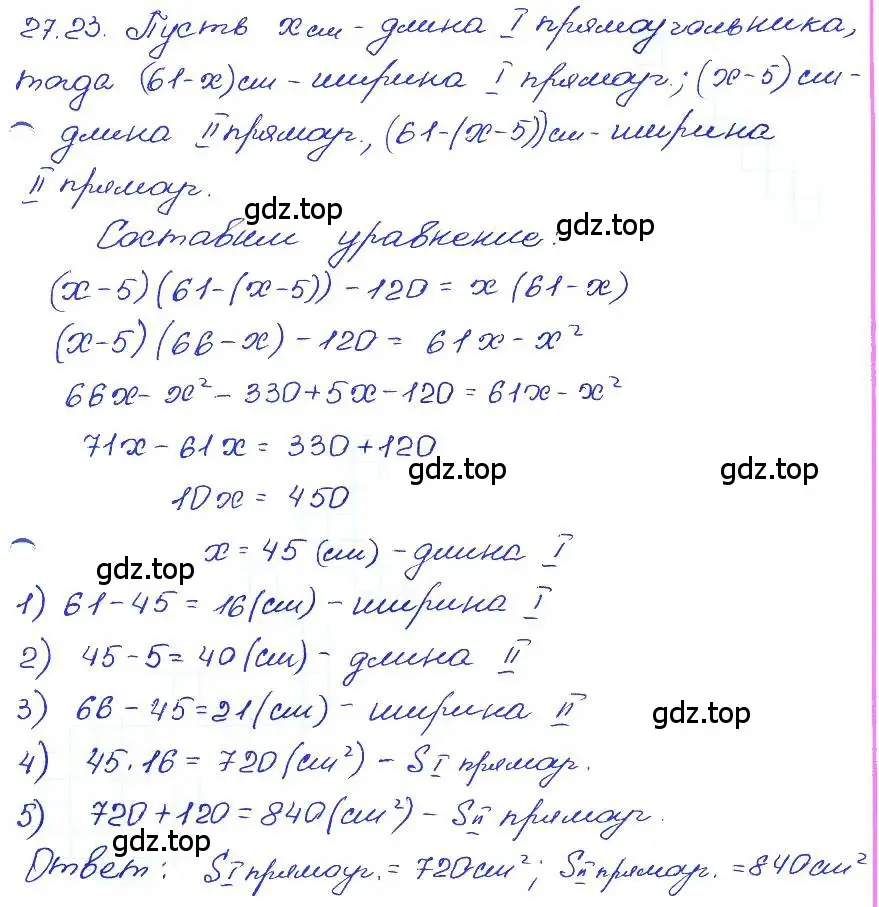 27.23. Пусть x см - длина I прямоугольника,
тогда (61-x)см - ширина I прямоуг.; (x-5) см -
длина II прямоуг., (61-(x-5))см - ширина
II прямоуг.
gdz.top
Составим уравнение:
gdz.top
(x-5)(61-(x-5)) - 120 = x (61-x)
(x-5)(66-x) - 120 = 61x - x²
66x - x² - 330 + 5x - 120 = 61x - x²
71x - 61x = 330 + 120
gdz.top
gdz.top
10x = 450
x = 45 (см) - длина I
gdz.top
1) 61 - 45 = 16 (см) - ширина I
2) 45 - 5 = 40 (см) - длина II
3) 66 - 45 = 21 (см) - ширина II
gdz.top
4) 45 . 16 = 720 (см²) - S I прямоуг.
5) 720 + 120 = 840 (см²) - S II прямоуг.
gdz.top
Ответ: S I прямоуг. = 720 см²; S II прямоуг. = 840 см²